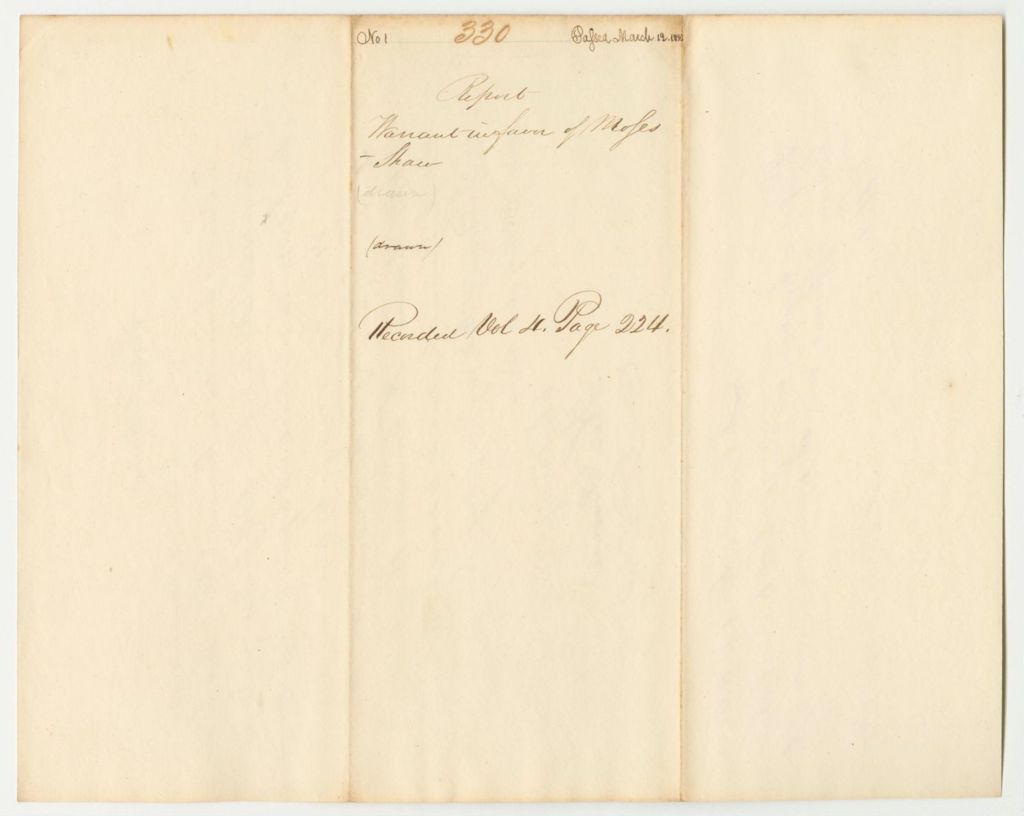 No 1 330 Passed March 19. 18
Report
Warrant in favor of Moses
Shaw
(drawn)
(drawn)
Recorded Vol 4. Page 224.